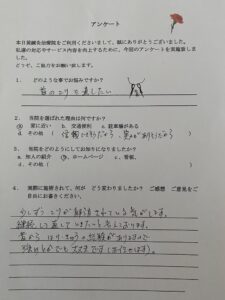 アンケート
本日展鍼灸治療院をご利用くださいまして、誠にありがとうございました。
私達の対応やサービス内容を向上するために、今回のアンケートを実施致しました。
どうぞ、ご協力をお願い致します。
1. どのような事でお悩みですか?
首のこりを直したい
2. 当院を選ばれた理由は何ですか?
a. 家に近い b. 交通便利 c. 駐車場がある
d. その他(信頼できそうだから、
3. 当院をどのようにしてお知りになりましたか?
a. 知人の紹介 b. ホームページ c. 看板、
d. その他( )
4. 実際に施術されて、何が どう変わりましたか? ご感想 ご意見をご
自由にお書きください。
少しずつこりが解消されている気がします。
継続して直していきたいと考えております。
昔からはりきゅうの経験がありますので